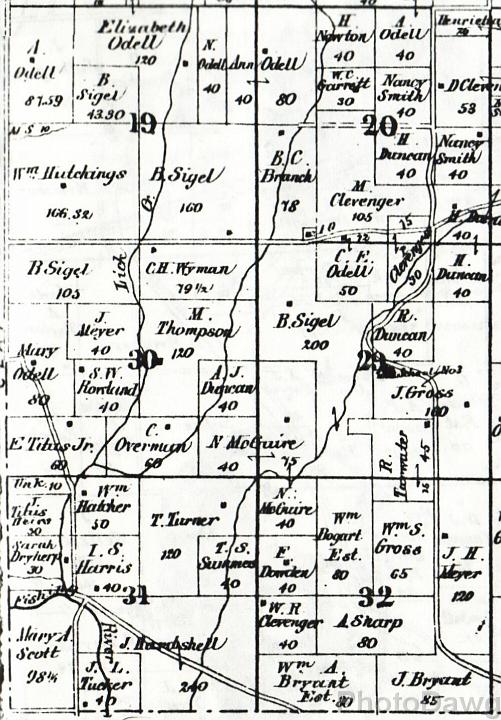 Elizabeth
Odell
120
A.
Odell
87.59
B
Sigel
43.30
N.
Odell
40
Ann Odell
40
80
H
Newton
40
A.
Odell
40
Henrietta
W.C.
Garrett
30
Nancy
Smith
40
D Cleven
53
19
20
Wm Hutchings
166.32
B. Sigel
160
B. C.
Branch
78
H
Duncan
40
Nancy
Smith
40
M.
Clevenger
105
15
10
12
40
B Sigel
105
Lick
C.H. Wyman
79 1/2
C. E.
Odell
50
Clevenger
50
H.
Duncan
40
J.
Meyer
40
M.
Thompson
120
B. Sigel
200
R.
Duncan
40
30
29
Mary
Odell
80
S.W.
40
A. J.
Duncan
40
School No 3
J. Gross
160
E Titus Jr.
60
C.
Overman
60
N McGuire
40
75
R.
45
15
Unk. 10
T.
Titus
Heirs
30
Wm
Hatcher
50
T. Turner
120
N.
McGuire
40
Wm
Bogart
Est.
80
Wm S.
Gross
65
J. H.
Meyer
120
Sarah
30
I. S.
Harris
40
T. S.
Summes
40
F.
Dowden
40
31
32
Fishing
River
W. R
Clevenger
40
A Sharp
80
Mary A.
Scott
98 1/4
J. Harbshell
240
J. L.
Tucker
40
Wm A.
Bryant
Est. 80
J. Bryant
45
PhotoDawg